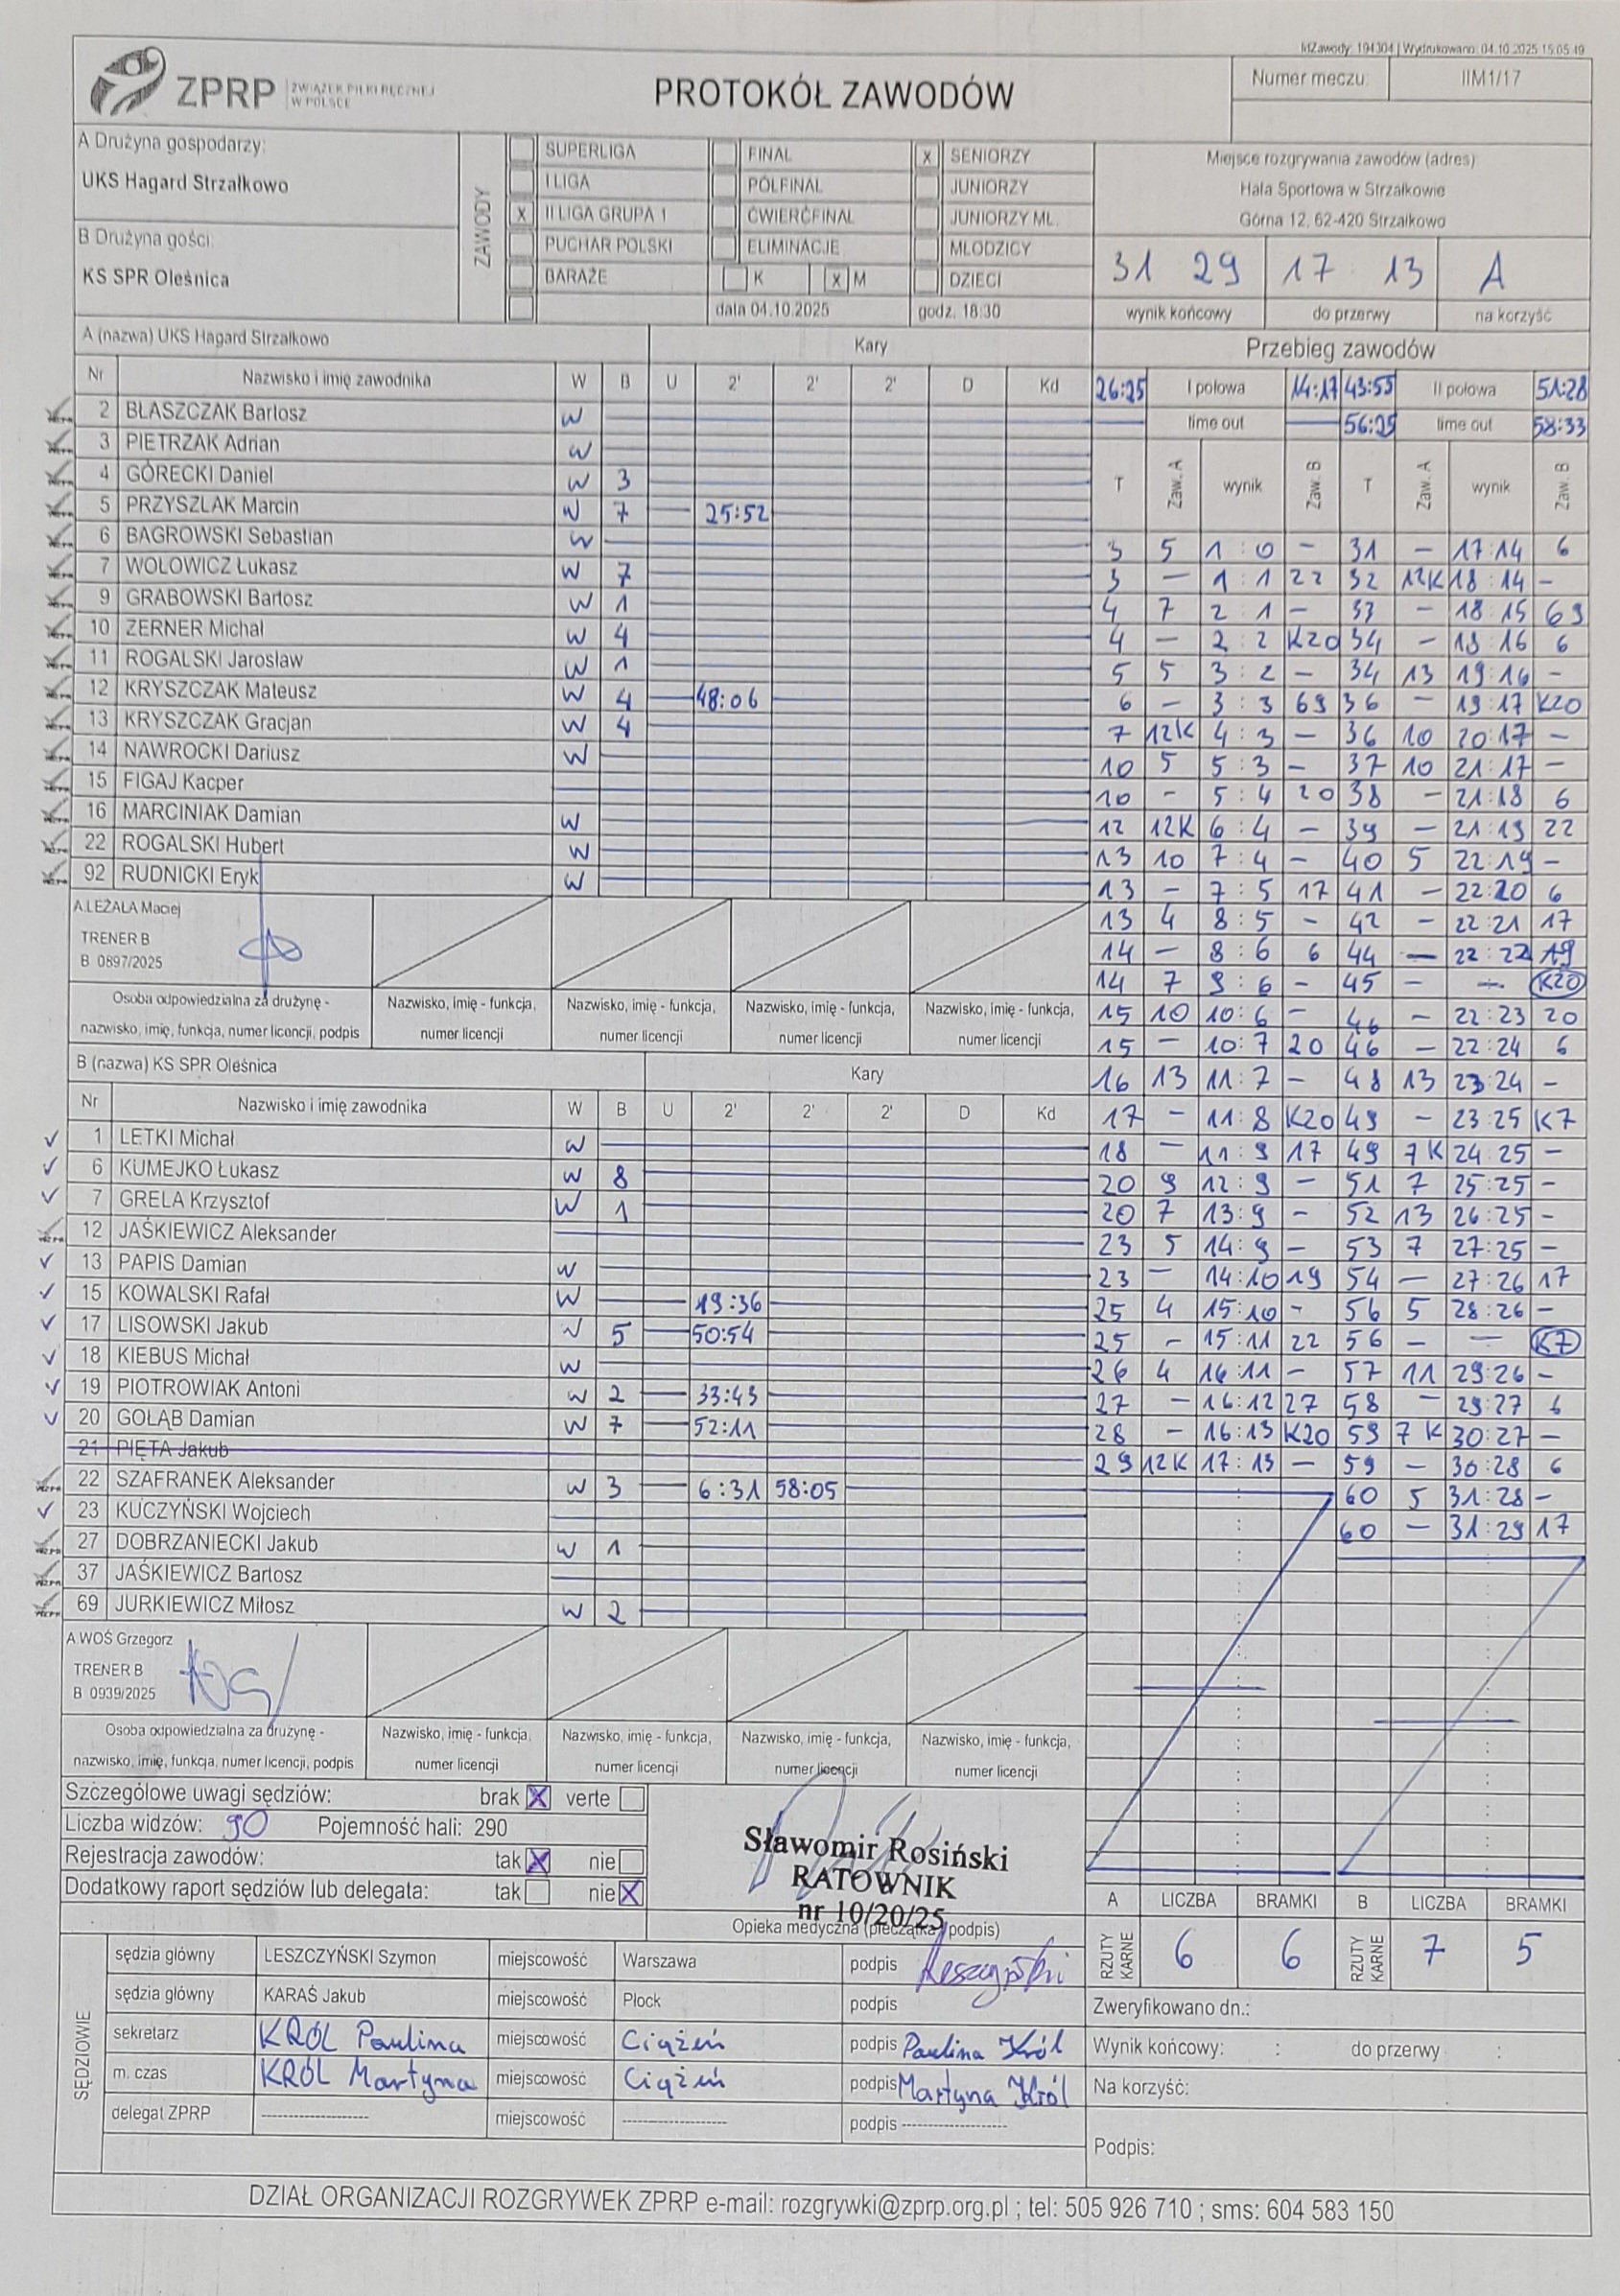 MZawody: 194304 | Wydrukowano: 04.10.2025 15:05:49
ZPRP ZWIĄZEK PIŁKI RĘCZNEJ W POLSCE
PROTOKÓŁ ZAWODÓW
Numer meczu: IIM1/17
A Drużyna gospodarzy:
UKS Hagard Strzałkowo
B Drużyna gości:
KS SPR Oleśnica
ZAWODY
SUPERLIGA FINAŁ x SENIORZY
I LIGA PÓŁFINAŁ JUNIORZY
x II LIGA GRUPA 1 ĆWIERĆFINAŁ JUNIORZY MŁ.
PUCHAR POLSKI ELIMINACJE MŁODZICY
BARAŻE K x M DZIECI
data 04.10.2025 godz. 18:30
Miejsce rozgrywania zawodów (adres)
Hala Sportowa w Strzałkowie
Górna 12, 62-420 Strzałkowo
31 29 17 : 13 A
wynik końcowy do przerwy na korzyść
A (nazwa) UKS Hagard Strzałkowo Kary
Nr Nazwisko i imię zawodnika W B U 2' 2' 2' D Kd
2 BŁASZCZAK Bartosz W
3 PIETRZAK Adrian W
4 GÓRECKI Daniel W 3
5 PRZYSZLAK Marcin W 7 25:52
6 BAGROWSKI Sebastian W
7 WOŁOWICZ Łukasz W 7
9 GRABOWSKI Bartosz W 1
10 ZERNER Michał W 4
11 ROGALSKI Jarosław W 1
12 KRYSZCZAK Mateusz W 4 48:06
13 KRYSZCZAK Gracjan W 4
14 NAWROCKI Dariusz W
15 FIGAJ Kacper
16 MARCINIAK Damian W
22 ROGALSKI Hubert W
92 RUDNICKI Eryk W
A.LEŻAŁA Maciej
TRENER B
B 0897/2025
Osoba odpowiedzialna za drużynę - nazwisko, imię, funkcja, numer licencji, podpis
Nazwisko, imię - funkcja, numer licencji
Nazwisko, imię - funkcja, numer licencji
Nazwisko, imię - funkcja, numer licencji
Nazwisko, imię - funkcja, numer licencji
B (nazwa) KS SPR Oleśnica Kary
Nr Nazwisko i imię zawodnika W B U 2' 2' 2' D Kd
1 LETKI Michał W
6 KUMEJKO Łukasz W 8
7 GRELA Krzysztof W 1
12 JAŚKIEWICZ Aleksander
13 PAPIS Damian W
15 KOWALSKI Rafał W 19:36
17 LISOWSKI Jakub W 5 50:54
18 KIEBUS Michał W
19 PIOTROWIAK Antoni W 2 33:43
20 GOŁĄB Damian W 7 52:11
21 PIĘTA Jakub
22 SZAFRANEK Aleksander W 3 6:31 58:05
23 KUCZYŃSKI Wojciech
27 DOBRZANIECKI Jakub W 1
37 JAŚKIEWICZ Bartosz
69 JURKIEWICZ Miłosz W 2
A.WOŚ Grzegorz
TRENER B
B 0939/2025
Osoba odpowiedzialna za drużynę - nazwisko, imię, funkcja, numer licencji, podpis
Nazwisko, imię - funkcja, numer licencji
Nazwisko, imię - funkcja, numer licencji
Nazwisko, imię - funkcja, numer licencji
Nazwisko, imię - funkcja, numer licencji
Przebieg zawodów
26:25 I połowa 14:17 43:55 II połowa 51:28
time out 56:25 time out 58:33
T Zaw. A wynik Zaw. B T Zaw. A wynik Zaw. B
3 5 1 : 0 - 31 - 17:14 6
3 - 1 : 1 22 32 12K 18:14 -
4 7 2 : 1 - 33 - 18:15 69
4 - 2 : 2 K20 34 - 18:16 6
5 5 3 : 2 - 34 13 19:16 -
6 - 3 : 3 69 36 - 19:17 K20
7 12K 4 : 3 - 36 10 20:17 -
10 5 5 : 3 - 37 10 21:17 -
10 - 5 : 4 20 38 - 21:18 6
12 12K 6 : 4 - 39 - 21:19 22
13 10 7 : 4 - 40 5 22:19 -
13 - 7 : 5 17 41 - 22:20 6
13 4 8 : 5 - 42 - 22:21 17
14 - 8 : 6 6 44 - 22:22 19
14 7 9 : 6 - 45 - - K20
15 10 10:6 - 46 - 22:23 20
15 - 10:7 20 46 - 22:24 6
16 13 11:7 - 48 13 23:24 -
17 - 11:8 K20 49 - 23:25 K7
18 - 11:9 17 49 7K 24:25 -
20 9 12:9 - 51 7 25:25 -
20 7 13:9 - 52 13 26:25 -
23 5 14:9 - 53 7 27:25 -
23 - 14:10 19 54 - 27:26 17
25 4 15:10 - 56 5 28:26 -
25 - 15:11 22 56 - - K7
26 4 16:11 - 57 11 29:26 -
27 - 16:12 27 58 - 29:27 6
28 - 16:13 K20 59 7K 30:27 -
29 12K 17:13 - 59 - 30:28 6
60 5 31:28 -
60 - 31:29 17
Szczegółowe uwagi sędziów: brak X verte
Liczba widzów: 90 Pojemność hali: 290
Rejestracja zawodów: tak X nie
Dodatkowy raport sędziów lub delegata: tak nie X
Sławomir Rosiński
RATOWNIK
nr 10/20/25
Opieka medyczna (pieczątka, podpis)
A LICZBA BRAMKI B LICZBA BRAMKI
RZUTY KARNE 6 6 RZUTY KARNE 7 5
SĘDZIOWIE
sędzia główny LESZCZYŃSKI Szymon miejscowość Warszawa podpis Leszczyński
sędzia główny KARAŚ Jakub miejscowość Płock podpis
sekretarz KRÓL Paulina miejscowość Ciążeń podpis Paulina Król
m. czas KRÓL Martyna miejscowość Ciążeń podpis Martyna Król
delegat ZPRP -------------------- miejscowość -------------------- podpis --------------------
Zweryfikowano dn.:
Wynik końcowy: : do przerwy :
Na korzyść:
Podpis:
DZIAŁ ORGANIZACJI ROZGRYWEK ZPRP e-mail: rozgrywki@zprp.org.pl ; tel: 505 926 710 ; sms: 604 583 150